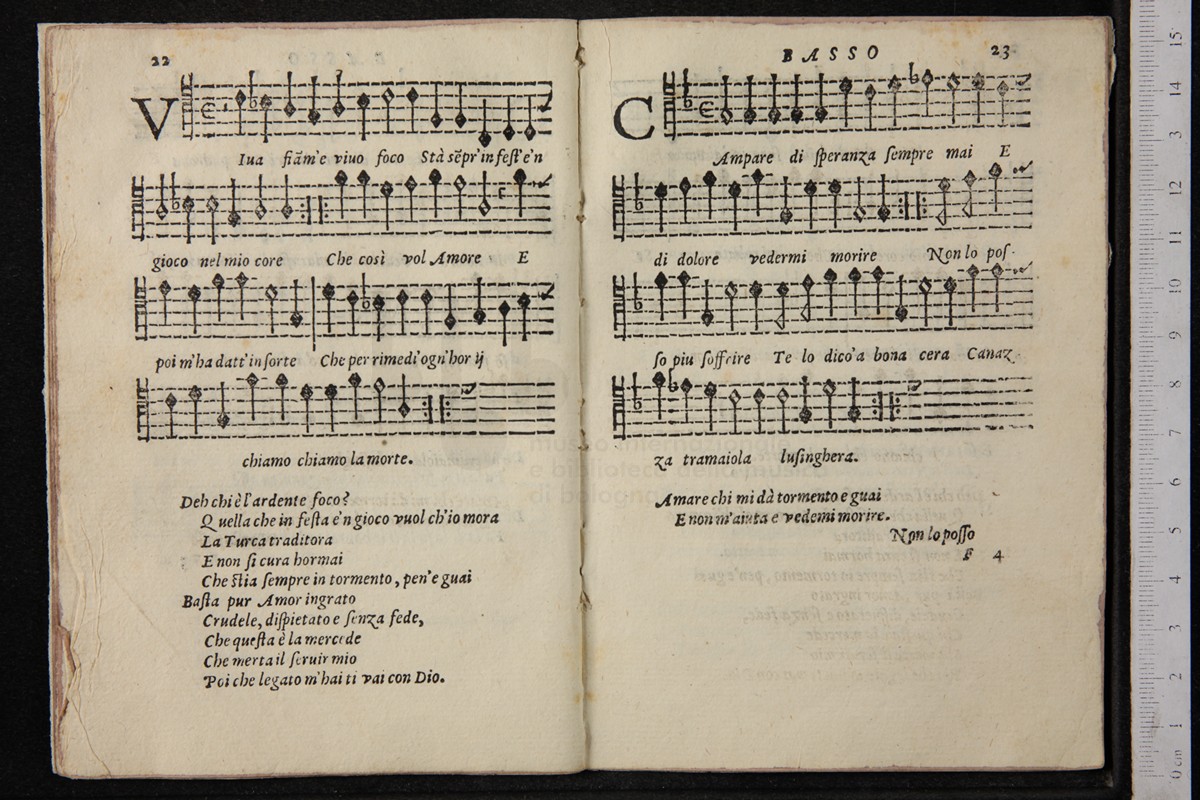 22
V
Iua fiãm'e viuo foco Stà sẽpr'in fest'e'n
gioco nel mio core Che così vol Amore E
poi m'ha datt' in sorte Che per rimedi'ogn'hor ij
chiamo chiamo la morte.
Deh chi è l'ardente foco?
Quella che in festa e'n gioco vuol ch'io mora
La Turca traditora
E non si cura hormai
Che stia sempre in tormento, pen'e guai
Basta pur Amor ingrato
Crudele, dispietato e senza fede,
Che questa è la mercede
Che merta il seruir mio
Poi che legato m'hai ti vai con Dio.
BASSO 23
C
Ampare di speranza sempre mai E
di dolore vedermi morire Non lo pos-
so piu soffrire Te lo dico'a bona cera Canaz
za tramaiola lusinghera.
Amare chi mi dà tormento e guai
E non m'aiuta e vedemi morire.
Non lo posso
F 4
museo internazionale
e biblioteca della musica
di bologna
15
14
13
12
11
10
9
8
7
6
5
4
3
2
1
0 cm